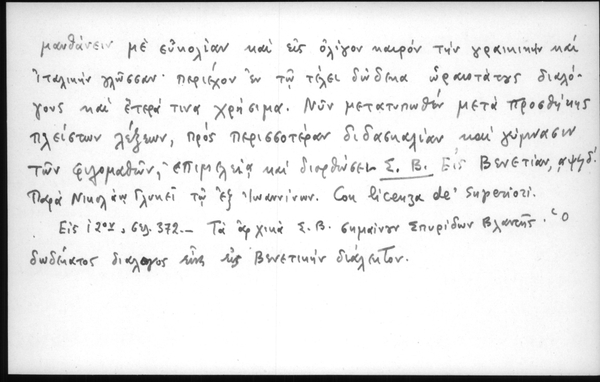 μανθάνειν μὲ εὐκολίαν καὶ εἰς ὀλίγον καιρὸν τὴν γραικικὴν καὶ
ἰταλικὴν γλῶσσαν· περιέχον ἐν τῷ τέλει δώδεκα ὡραιοτάτους διαλό-
γους καὶ ἕτερά τινα χρήσιμα. Νῦν μετατυπωθὲν μετὰ προσθήκης
πλείστων λέξεων, πρὸς περισσοτέραν διδασκαλίαν καὶ γύμνασιν
τῶν φιλομαθῶν, ἐπιμελείᾳ καὶ διορθώσει Σ. Β. Εἰς Βενετίαν, αψϟδ'.
Παρὰ Νικολάῳ Γλυκεῖ τῷ ἐξ Ἰωαννίνων. Con licenza de' Superiori.
Εἰς 12ον, σελ. 372.— Τὰ ἀρχικὰ Σ. Β. σημαίνουν Σπυρίδων Βλαντῆς. Ὁ
δωδέκατος διάλογος εἶναι εἰς Βενετικὴν διάλεκτον.